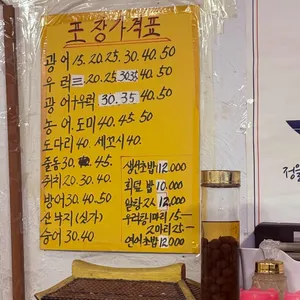 포장가격표
광어 15. 20. 25. 30. 40. 50
우럭 20. 25 30 35 40. 50
광어+우럭 30. 35 40. 50
농어. 도미 40. 45. 50
도다리 40. 세꼬시 40.
줄돔 30. 45.
쥐치 20. 30. 40
방어 30. 40. 50
산낙지 (싱가)
숭어 30. 40
생선초밥 12,000
회덮밥 10,000
알탕 2人 12,000
우럭탕 1마리 15—
2마리 25—
연어초밥 12,000